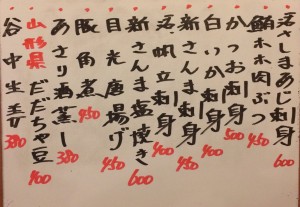 活さしまあじ刺身 600
鮪ホホ肉ぶつ 450
かつお刺身 500
白いか刺身 400
新さんま刺身 450
活帆立刺身 400
新さんま塩焼き 600
目光唐揚げ 450
豚角煮 450
あさり酒蒸し 380
山形県だだちゃ豆 400
谷中生姜 380